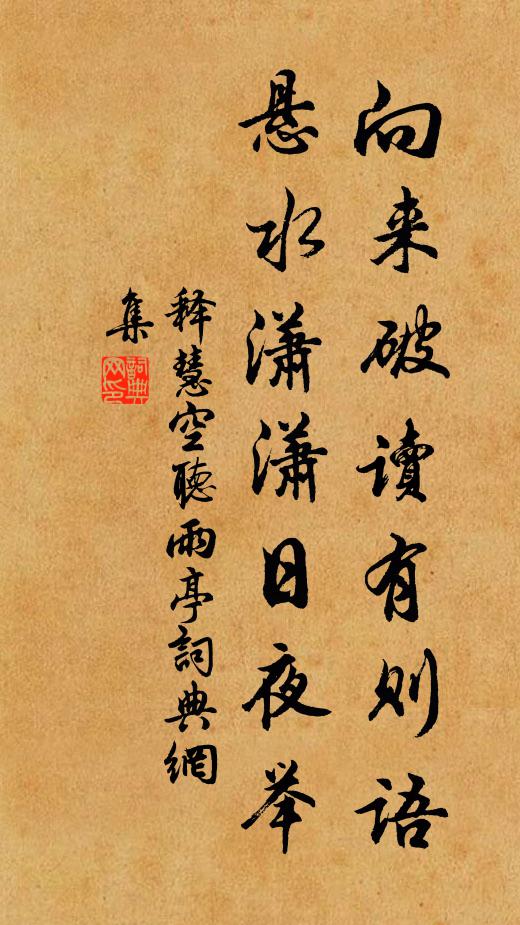 向来破读有则语
悬水潇潇日夜举
释慧空聽雨亭詞典網
集
詞典网印